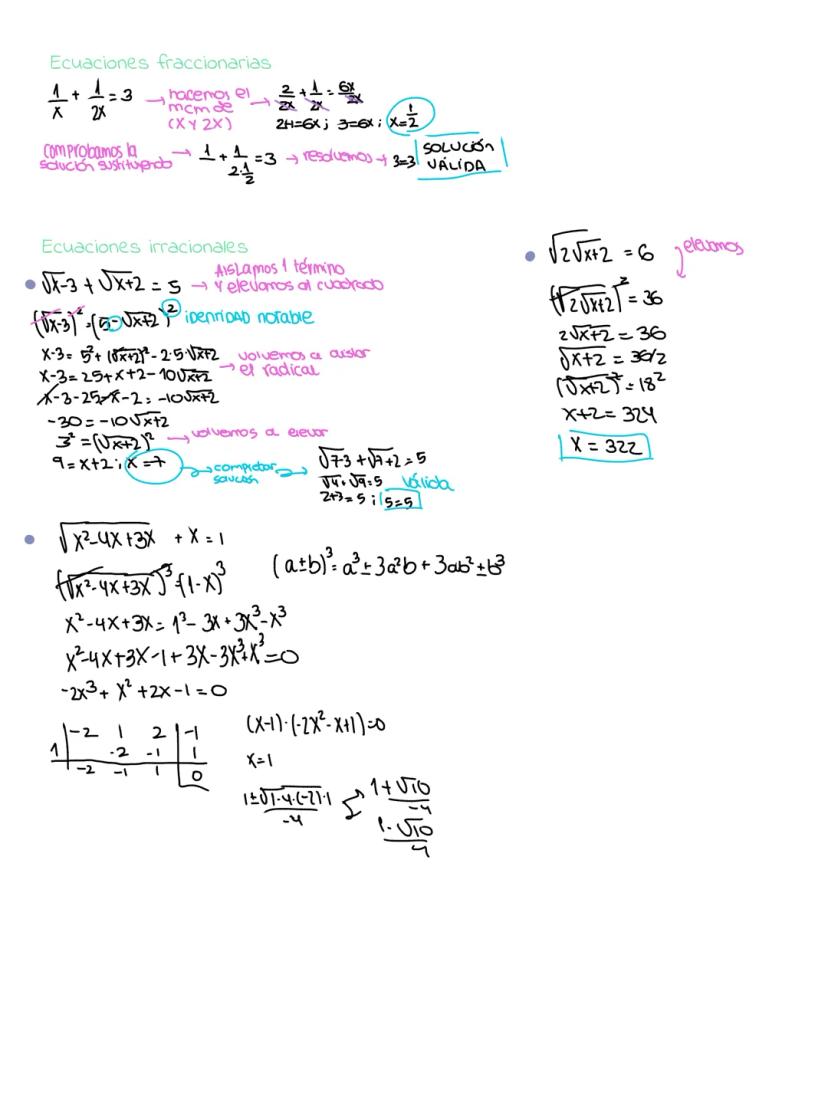 Ecuaciones fraccionarias
1/x + 1/2x = 3 → hacemos el mcm de (x y 2x) → 2/2x + 1/2x = 6x/2x
2+1=6x ; 3=6x ; x=1/2
comprobamos la solución sustituyendo → 1 + 1/2·1/2 = 3 → resolvemos → 3=3 SOLUCIÓN VÁLIDA
Ecuaciones irracionales
• √x-3 + √x+2 = 5 → Aislamos 1 término y elevamos al cuadrado
(√x-3)² = (5-√x+2)² identidad notable
x-3 = 5² + (√x+2)² - 2·5·√x+2
x-3 = 25+x+2-10√x+2 → volvemos a aislar el radical
x-3-25-x-2 = -10√x+2
-30 = -10√x+2
3² = (√x+2)² → volvemos a elevar
9 = x+2 ; x=7 → comprobar
√7-3 + √7+2 = 5
√4 + √9 = 5 válida
2+3=5 ; 5=5
• √2√x+2 = 6 elevamos
(√2√x+2)² = 36
2√x+2 = 36
√x+2 = 36/2
(√x+2)² = 18²
x+2 = 324
x = 322
• √x²-4x+3x + x = 1
(√x²-4x+3x)³ = (1-x)³ (a±b)³ = a³ ± 3a²b + 3ab² ± b³
x²-4x+3x = 1³ - 3x + 3x³ - x³
x²-4x+3x-1+3x-3x³+x³ = 0
-2x³ + x² + 2x - 1 = 0
-2 1 2 -1
1 -2 -1 1
-2 -1 1 0
(x-1)·(-2x²-x+1)=0
x=1
1±√1-4·(-2)·1/-4
1+√10/-4
1-√10/4